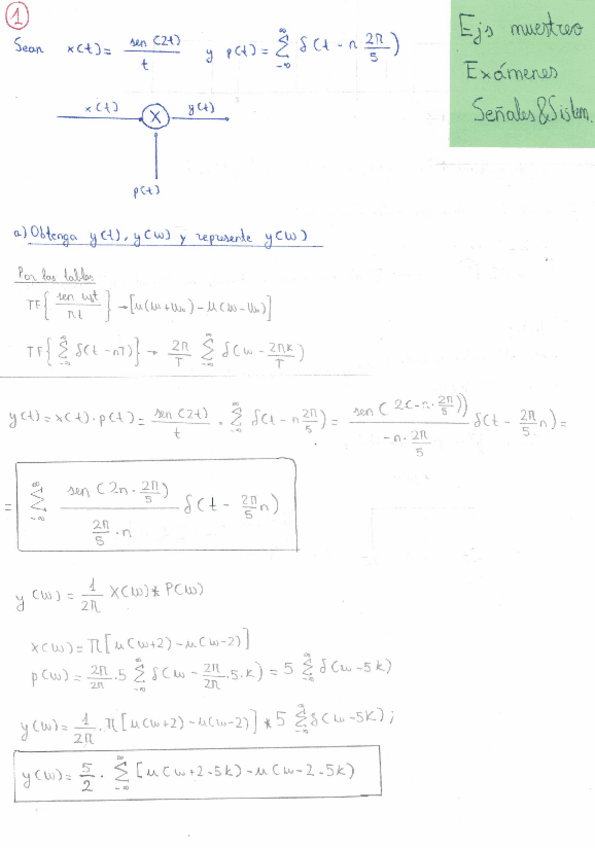 1
Sean x(t) = sen(2t)/t y p(t) = ∑_{-∞}^{∞} δ(t - n 2π/5)
Ejs muestreo
Exámenes
Señales&Sistem.
x(t) X y(t)
p(t)
a) Obtenga y(t), y(w) y represente y(w)
Por las tablas
TF{sen wot/πt} → [u(w+wo) - u(w-wo)]
TF{∑_{-∞}^{∞} δ(t-nT)} → 2π/T ∑_{-∞}^{∞} δ(w - 2πk/T)
y(t) = x(t)·p(t) = sen(2t)/t · ∑_{-∞}^{∞} δ(t - n 2π/5) = sen(2(-n·2π/5))/(-n·2π/5) δ(t - 2π/5 n) =
= ∑_{-∞}^{∞} sen(2n·2π/5)/(2π/5·n) δ(t - 2π/5 n)
y(w) = 1/2π X(w) * P(w)
x(w) = π[u(w+2) - u(w-2)]
p(w) = 2π/2π·5 ∑_{-∞}^{∞} δ(w - 2π/2π·5·k) = 5 ∑_{-∞}^{∞} δ(w-5k)
y(w) = 1/2π·π[u(w+2) - u(w-2)] * 5 ∑_{-∞}^{∞} δ(w-5k);
y(w) = 5/2 · ∑_{-∞}^{∞} [u(w+2-5k) - u(w-2-5k)]